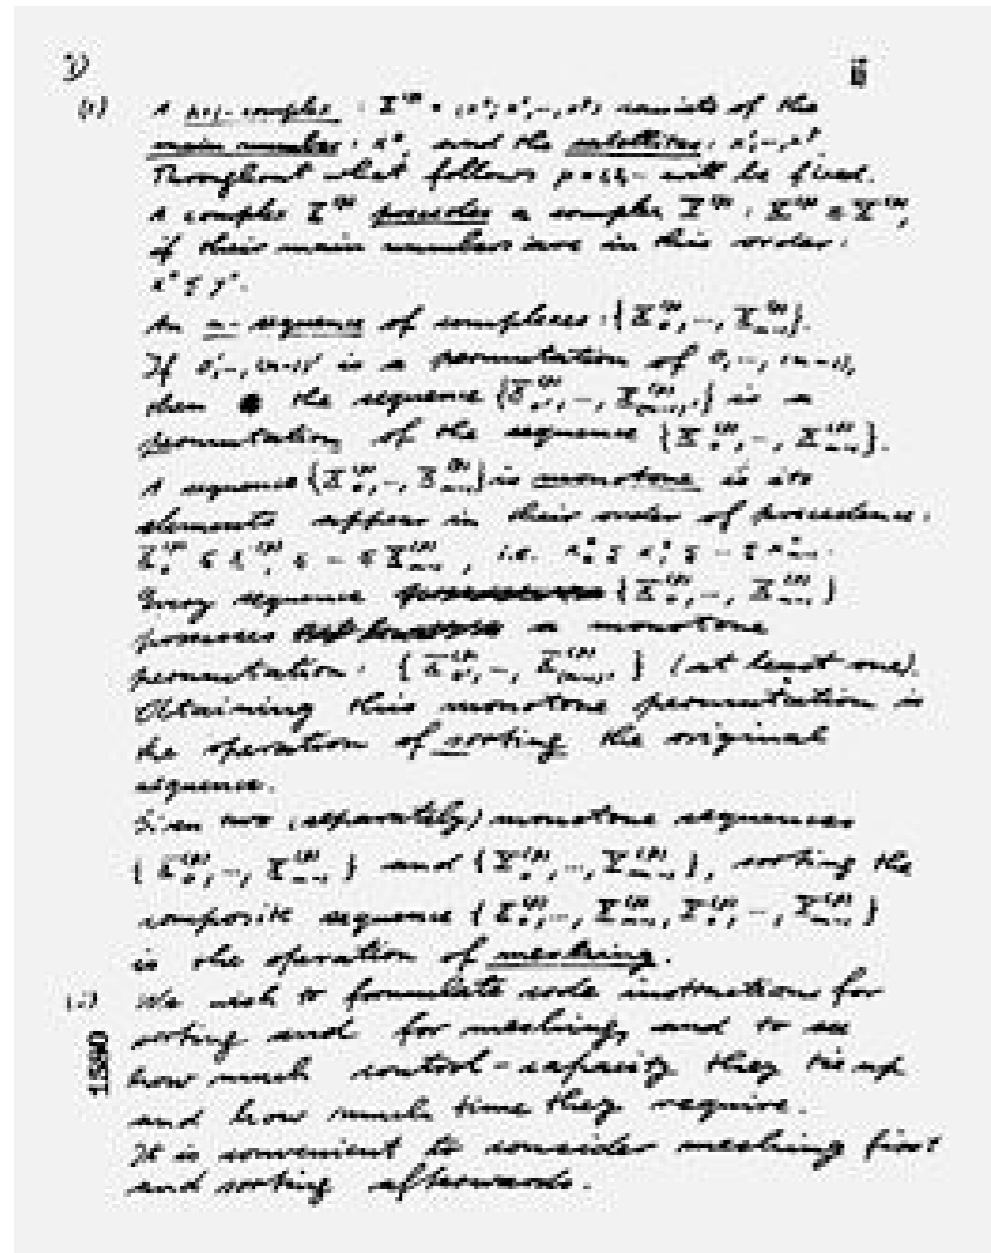 ii
(1) A p+1-complex : X^(p) = (x°; x', ‒, x^p) consists of the
main number : x°, and the satellites : x', ‒, x^p.
Throughout what follows p = 1, 2, ‒ will be fixed.
A complex X^(p) precedes a complex Y^(p) : X^(p) ≤ Y^(p),
if their main numbers are in this order :
x° ≤ y°.
An n-sequence of complexes : {X_0^(p), ‒, X_{n-1}^(p)}.
If 0', ‒, (n-1)' is a permutation of 0, ‒, (n-1),
then the sequence {X_0'^(p), ‒, X_{(n-1)'}^(p)} is a
permutation of the sequence {X_0^(p), ‒, X_{n-1}^(p)}.
A sequence {X_0^(p), ‒, X_{n-1}^(p)} is monotone is its
elements appear in their order of precedence :
X_0^(p) ≤ X_1^(p) ≤ ‒ ≤ X_{n-1}^(p), i.e. x_0° ≤ x_1° ≤ ‒ ≤ x_{n-1}°.
Every sequence {X_0^(p), ‒, X_{n-1}^(p)}
possesses a monotone
permutation : {X_0'^(p), ‒, X_{(n-1)'}^(p)} (at least one).
Obtaining this monotone permutation is
the operation of sorting the original
sequence.
Given two (separately) monotone sequences
{X_0^(p), ‒, X_{n-1}^(p)} and {Y_0^(p), ‒, Y_{m-1}^(p)}, sorting the
composite sequence {X_0^(p), ‒, X_{n-1}^(p), Y_0^(p), ‒, Y_{m-1}^(p)}
is the operation of meshing.
We wish to formulate code instructions for
sorting and for meshing, and to see
how much control-capacity they tie up
and how much time they require.
It is convenient to consider meshing first
and sorting afterwards.
1580